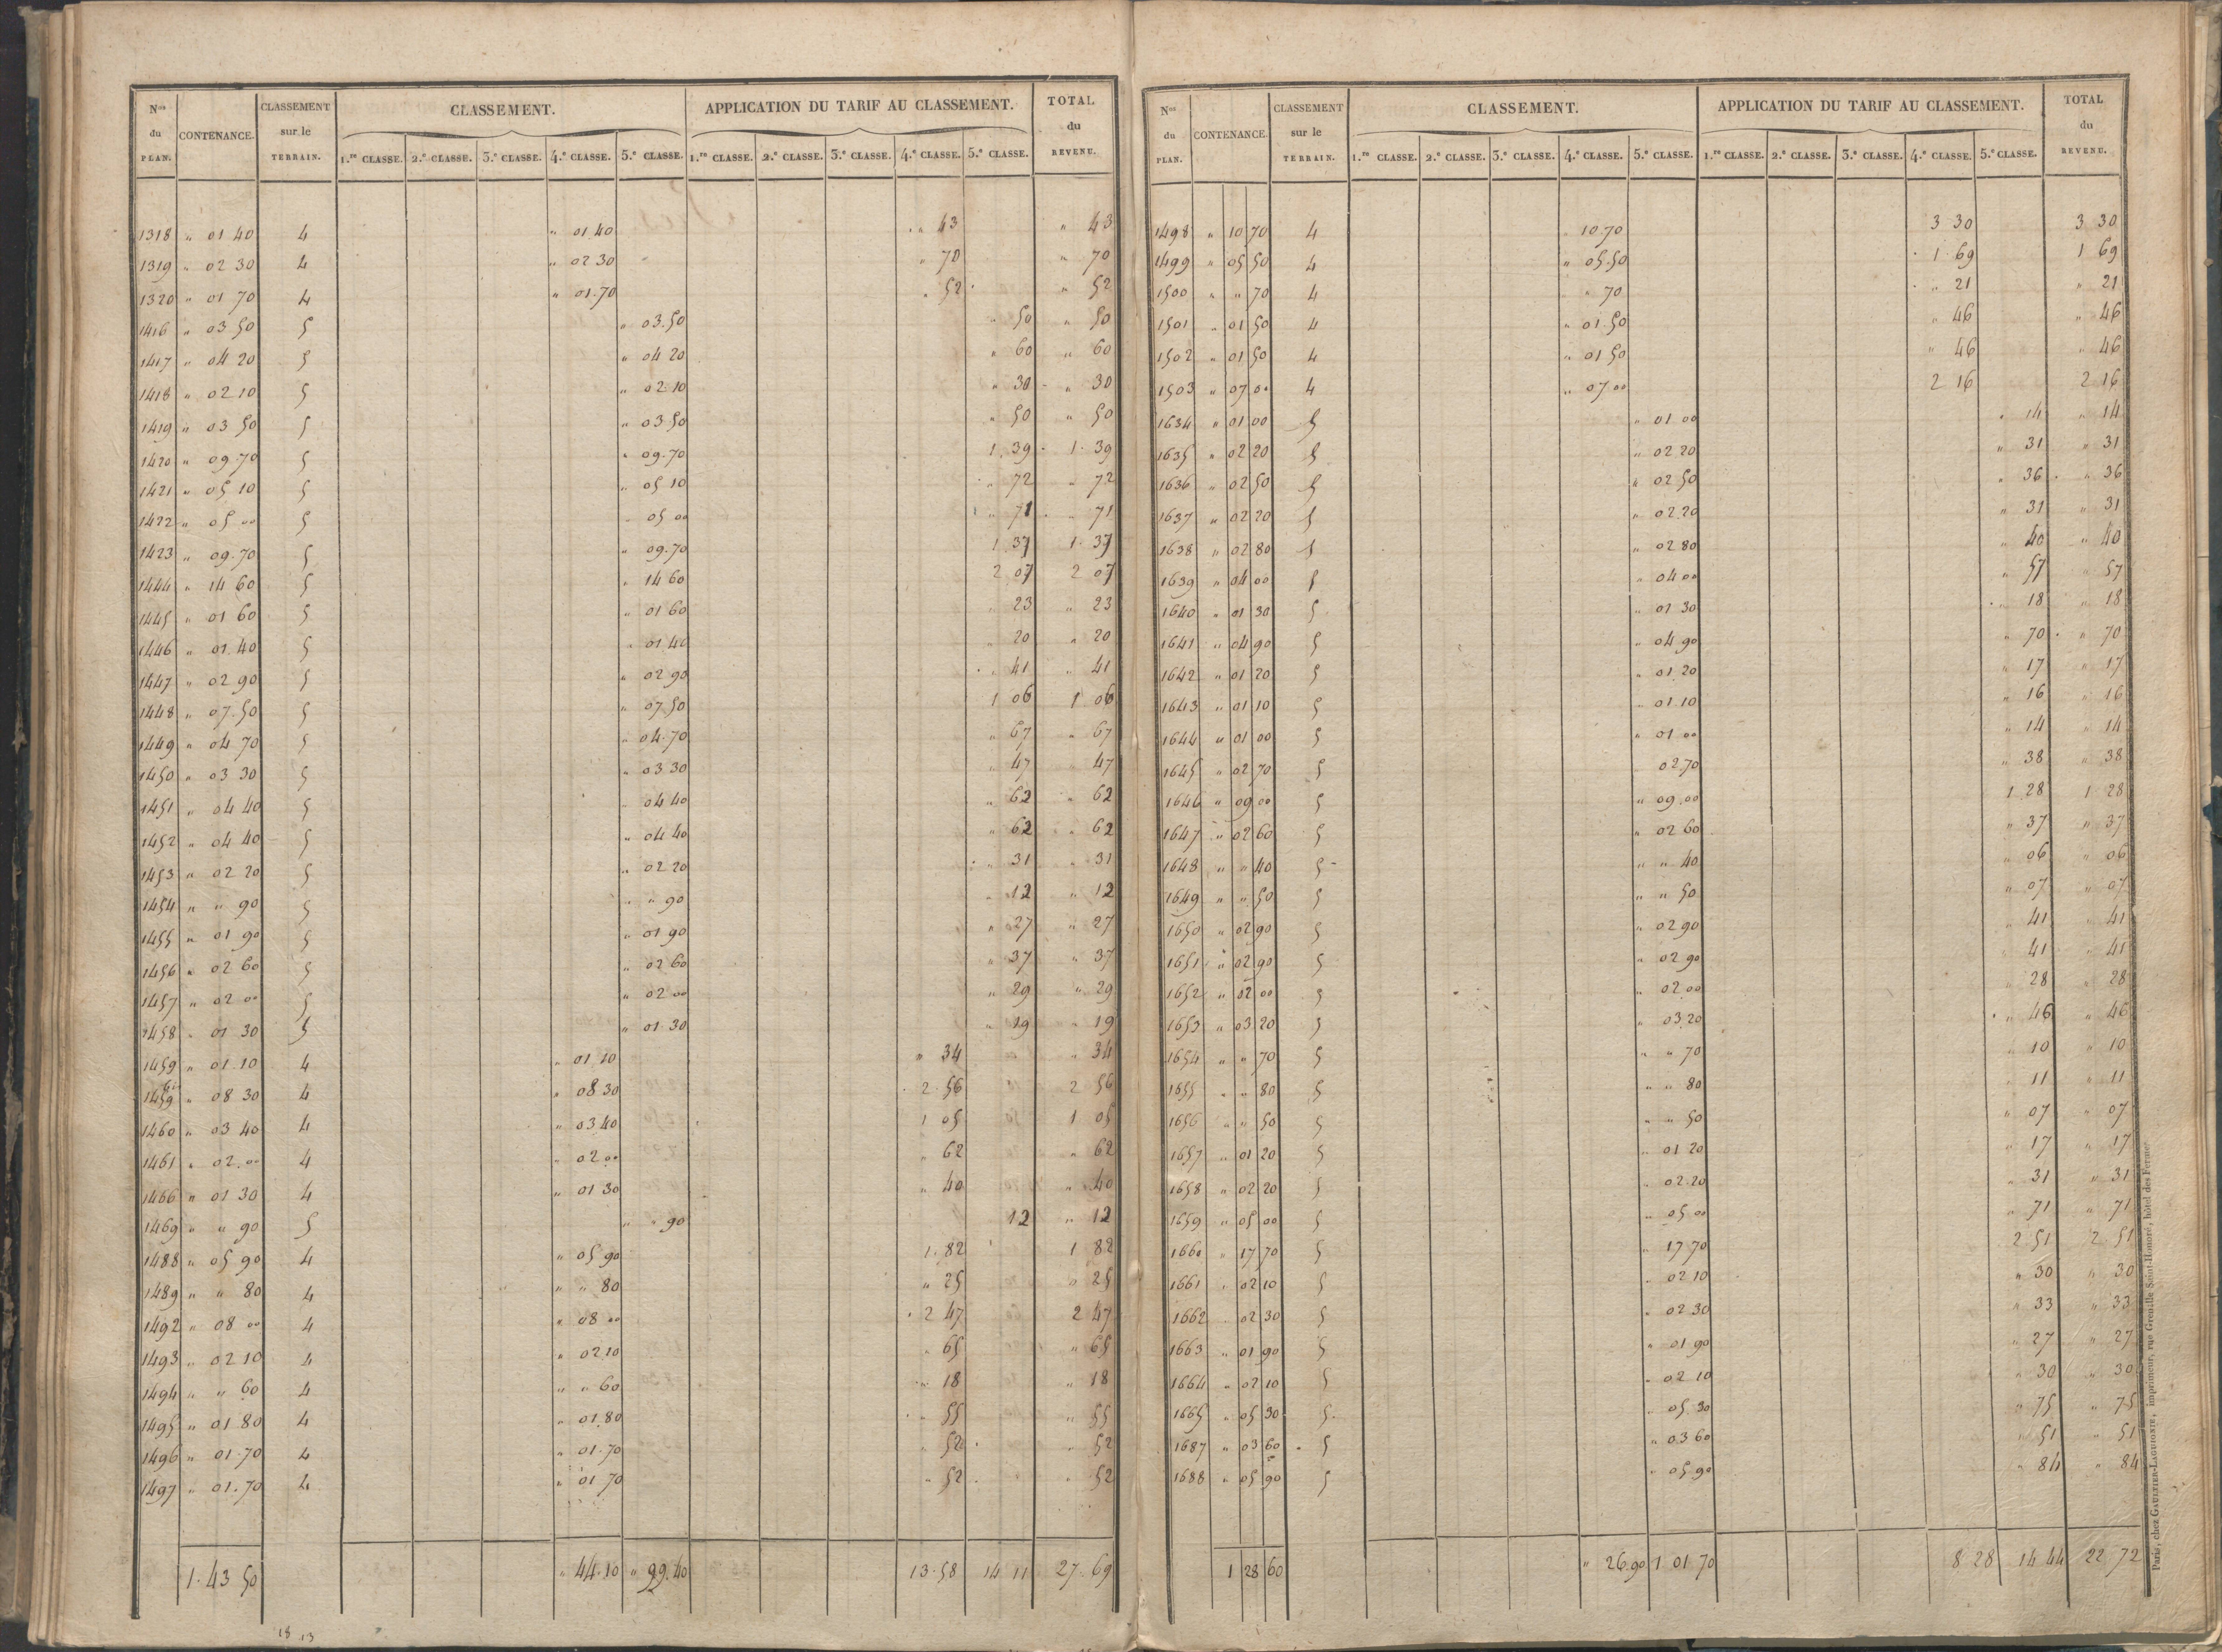 Nos du PLAN. CONTENANCE. CLASSEMENT sur le TERRAIN. CLASSEMENT. APPLICATION DU TARIF AU CLASSEMENT. TOTAL du REVENU.
1.re CLASSE. 2.e CLASSE. 3.e CLASSE. 4.e CLASSE. 5.e CLASSE. 1.re CLASSE. 2.e CLASSE. 3.e CLASSE. 4.e CLASSE. 5.e CLASSE.
1318 " 01 40 4 " 01 40 " 43 " 43
1319 " 02 30 4 " 02 30 " 70 " 70
1320 " 01 70 4 " 01.70 " 52 " 52
1416 " 03 50 5 " 03.50 " 50 " 50
1417 " 04 20 5 " 04 20 " 60 " 60
1418 " 02 10 5 " 02 10 " 30 " 30
1419 " 03 50 5 " 03 50 " 50 " 50
1420 " 09.70 5 " 09.70 1.39 1.39
1421 " 05 10 5 " 05 10 " 72 " 72
1422 " 05 00 5 " 05 00 " 71 " 71
1423 " 09.70 5 " 09.70 1.37 1.37
1444 " 14 60 5 " 14 60 2 07 2 07
1445 " 01 60 5 " 01 60 " 23 " 23
1446 " 01.40 5 " 01 40 " 20 " 20
1447 " 02 90 5 " 02 90 " 41 " 41
1448 " 07.50 5 " 07.50 1 06 1 06
1449 " 04 70 5 " 04.70 " 67 " 67
1450 " 03 30 5 " 03 30 " 47 " 47
1451 " 04 40 5 " 04 40 " 62 " 62
1452 " 04 40 5 " 04 40 " 62 " 62
1453 " 02 20 5 " 02 20 " 31 " 31
1454 " " 90 5 " " 90 " 12 " 12
1455 " 01 90 5 " 01 90 " 27 " 27
1456 " 02 60 5 " 02 60 " 37 " 37
1457 " 02 00 5 " 02 00 " 29 " 29
1458 " 01 30 5 " 01.30 " 19 " 19
1459 " 01.10 4 " 01.10 " 34 " 34
1459 bis " 08 30 4 " 08 30 2.56 2 56
1460 " 03 40 4 " 03 40 1 05 1 05
1461 " 02.00 4 " 02 00 " 62 " 62
1466 " 01 30 4 " 01 30 " 40 " 40
1469 " " 90 5 " " 90 12 " 12
1488 " 05 90 4 " 05 90 1.82 1 82
1489 " " 80 4 " " 80 " 25 " 25
1492 " 08 00 4 " 08 00 2 47 2 47
1493 " 02 10 4 " 02.10 " 65 " 65
1494 " " 60 4 " " 60 " 18 " 18
1495 " 01 80 4 " 01.80 " 55 " 55
1496 " 01.70 4 " 01.70 " 52 " 52
1497 " 01.70 4 " 01 70 " 52 " 52
1.43 50 " 44.10 " 99.40 13.58 14 11 27.69
18 13
Nos du PLAN. CONTENANCE. CLASSEMENT sur le TERRAIN. CLASSEMENT. APPLICATION DU TARIF AU CLASSEMENT. TOTAL du REVENU.
1.re CLASSE. 2.e CLASSE. 3.e CLASSE. 4.e CLASSE. 5.e CLASSE. 1.re CLASSE. 2.e CLASSE. 3.e CLASSE. 4.e CLASSE. 5.e CLASSE.
1498 " 10 70 4 10.70 3 30 3 30
1499 " 05 50 4 " 05.50 1.69 1 69
1500 " " 70 4 " 70 " 21 " 21
1501 " 01 50 4 " 01.50 " 46 " 46
1502 " 01 50 4 " 01 50 " 46 " 46
1503 " 07 00 4 " 07 00 2 16 2 16
1634 " 01 00 5 " 01 00 " 14 " 14
1635 " 02 20 5 " 02 20 " 31 " 31
1636 " 02 50 5 " 02 50 " 36 " 36
1637 " 02 20 5 " 02.20 " 31 " 31
1638 " 02 80 5 " 02 80 " 40 " 40
1639 " 04 00 5 " 04 00 " 57 " 57
1640 " 01 30 5 " 01 30 " 18 " 18
1641 " 04 90 5 " 04.90 " 70 " 70
1642 " 01 20 5 " 01.20 " 17 " 17
1643 " 01 10 5 " 01.10 " 16 " 16
1644 " 01 00 5 " 01 00 " 14 " 14
1645 " 02 70 5 02.70 " 38 " 38
1646 " 09 00 5 " 09.00 1 28 1 28
1647 " 02 60 5 " 02 60 " 37 " 37
1648 " " 40 5 " " 40 " 06 " 06
1649 " " 50 5 " " 50 " 07 " 07
1650 " 02 90 5 " 02 90 " 41 " 41
1651 " 02 90 5 " 02 90 " 41 " 41
1652 " 02 00 5 " 02.00 " 28 " 28
1653 " 03 20 5 " 03.20 " 46 " 46
1654 " " 70 5 " " 70 " 10 " 10
1655 " " 80 5 " " 80 " 11 " 11
1656 " " 50 5 " " 50 " 07 " 07
1657 " 01 20 5 " 01 20 " 17 " 17
1658 " 02 20 5 " 02.20 " 31 " 31
1659 " 05 00 5 " 05 00 " 71 " 71
1660 " 17 70 5 " 17.70 2.51 2 51
1661 " 02 10 5 " 02 10 " 30 " 30
1662 " 02 30 5 " 02 30 " 33 " 33
1663 " 01 90 5 " 01 90 " 27 " 27
1664 " 02 10 5 " 02 10 " 30 " 30
1665 " 05 30 5 " 05.30 " 75 " 75
1687 " 03 60 5 " 03 60 " 51 " 51
1688 " 05 90 5 " 05.90 " 84 " 84
1 28 60 " 26.90 1 01 70 8 28 14 44 22 72
Paris, chez GAULTIER-LAGUIONIE, imprimeur, rue Grenelle Saint-Honoré, hôtel des Fermes